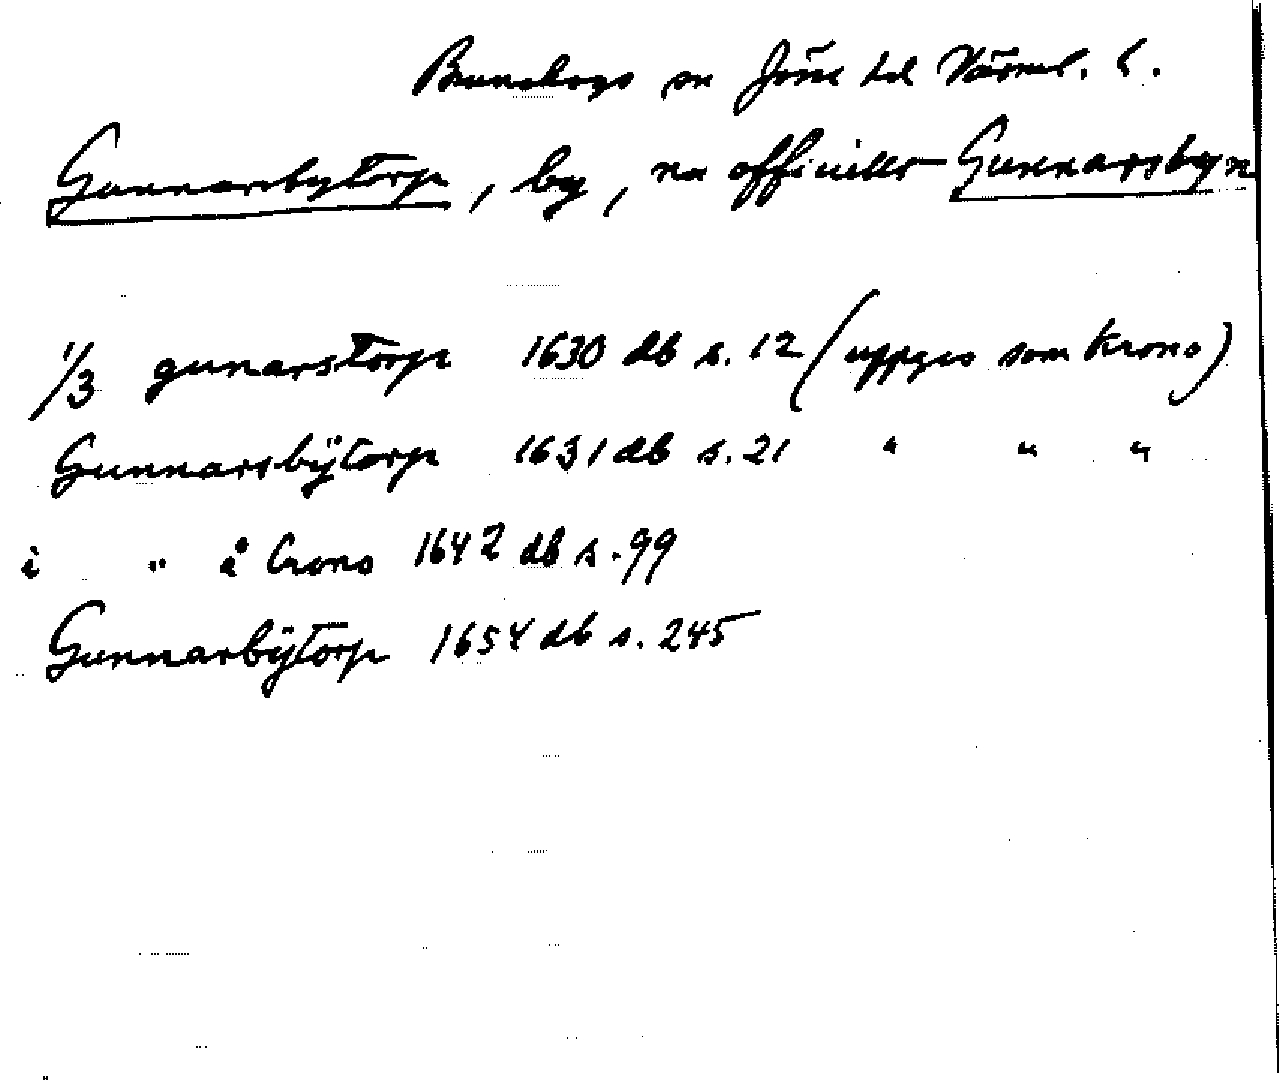 Brunskogs sn Jösse hd Värml. l.
Gunnarsbytorp, by, nu officiellt Gunnarsbyn
1/3 gunarstorp 1630 db s. 12 (uppges som Krono)
Gunnarsbÿtorp 1631 db s. 21 " " "
i " å Crono 1642 db s. 99
Gunnarbÿtorp 1654 db s. 245